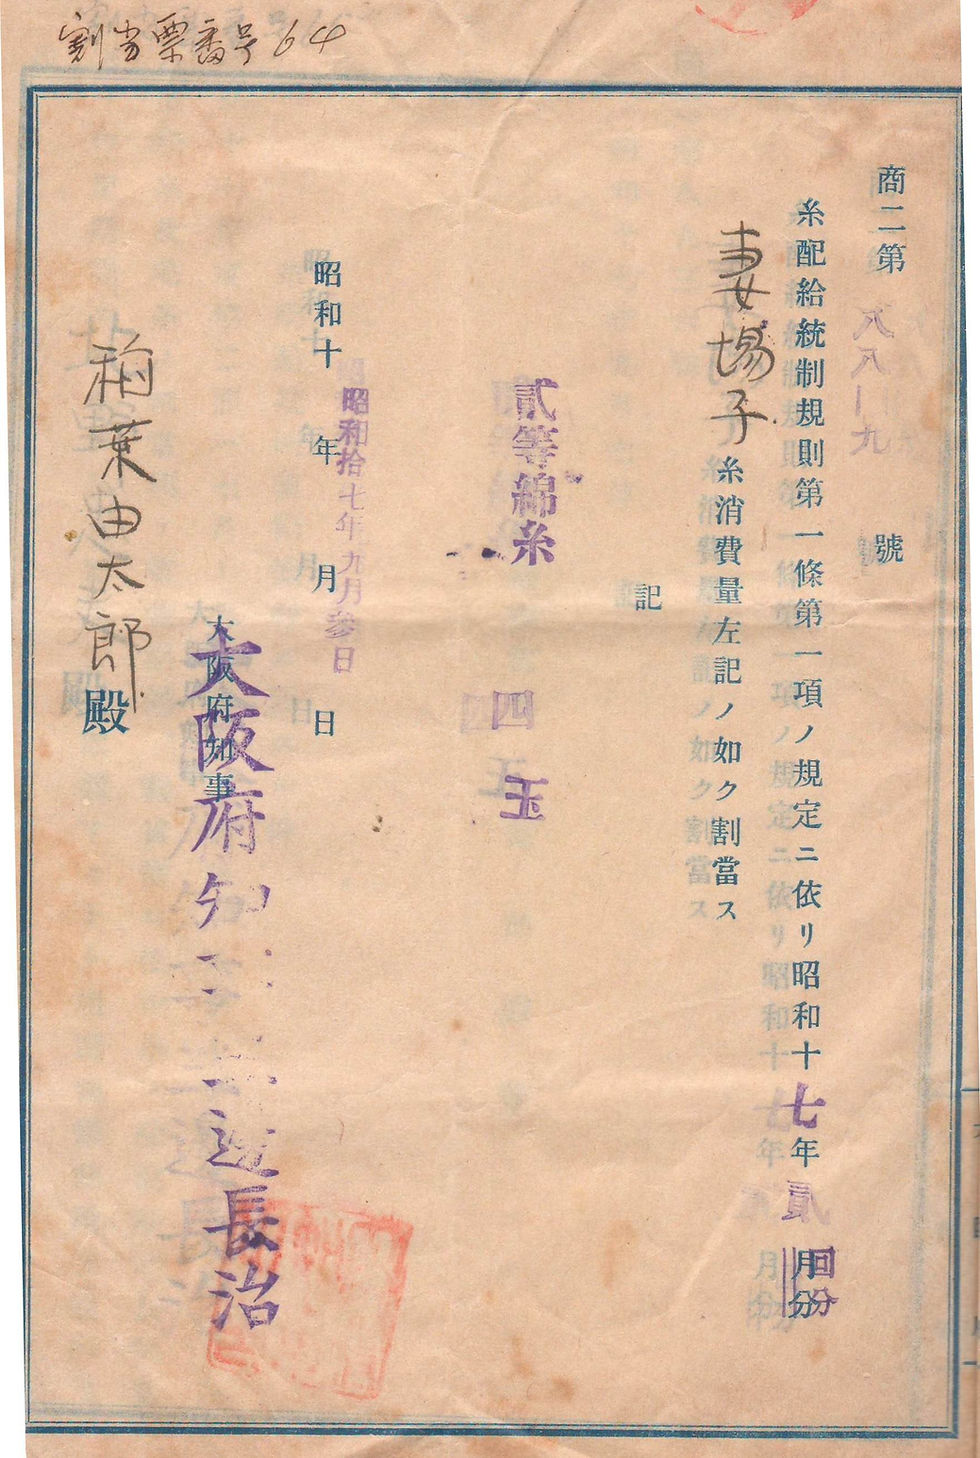 割当票番号64
商二第八八一九號
糸配給統制規則第一條第一項ノ規定ニ依リ昭和十七年貳回分
月分
妻場子糸消費量左記ノ如ク割當ス
記
貳等綿糸 四玉
昭和十 年 月 日
昭和拾七年九月参日
大阪府知事
大阪府知事三邊長治
稲葉由太郎殿